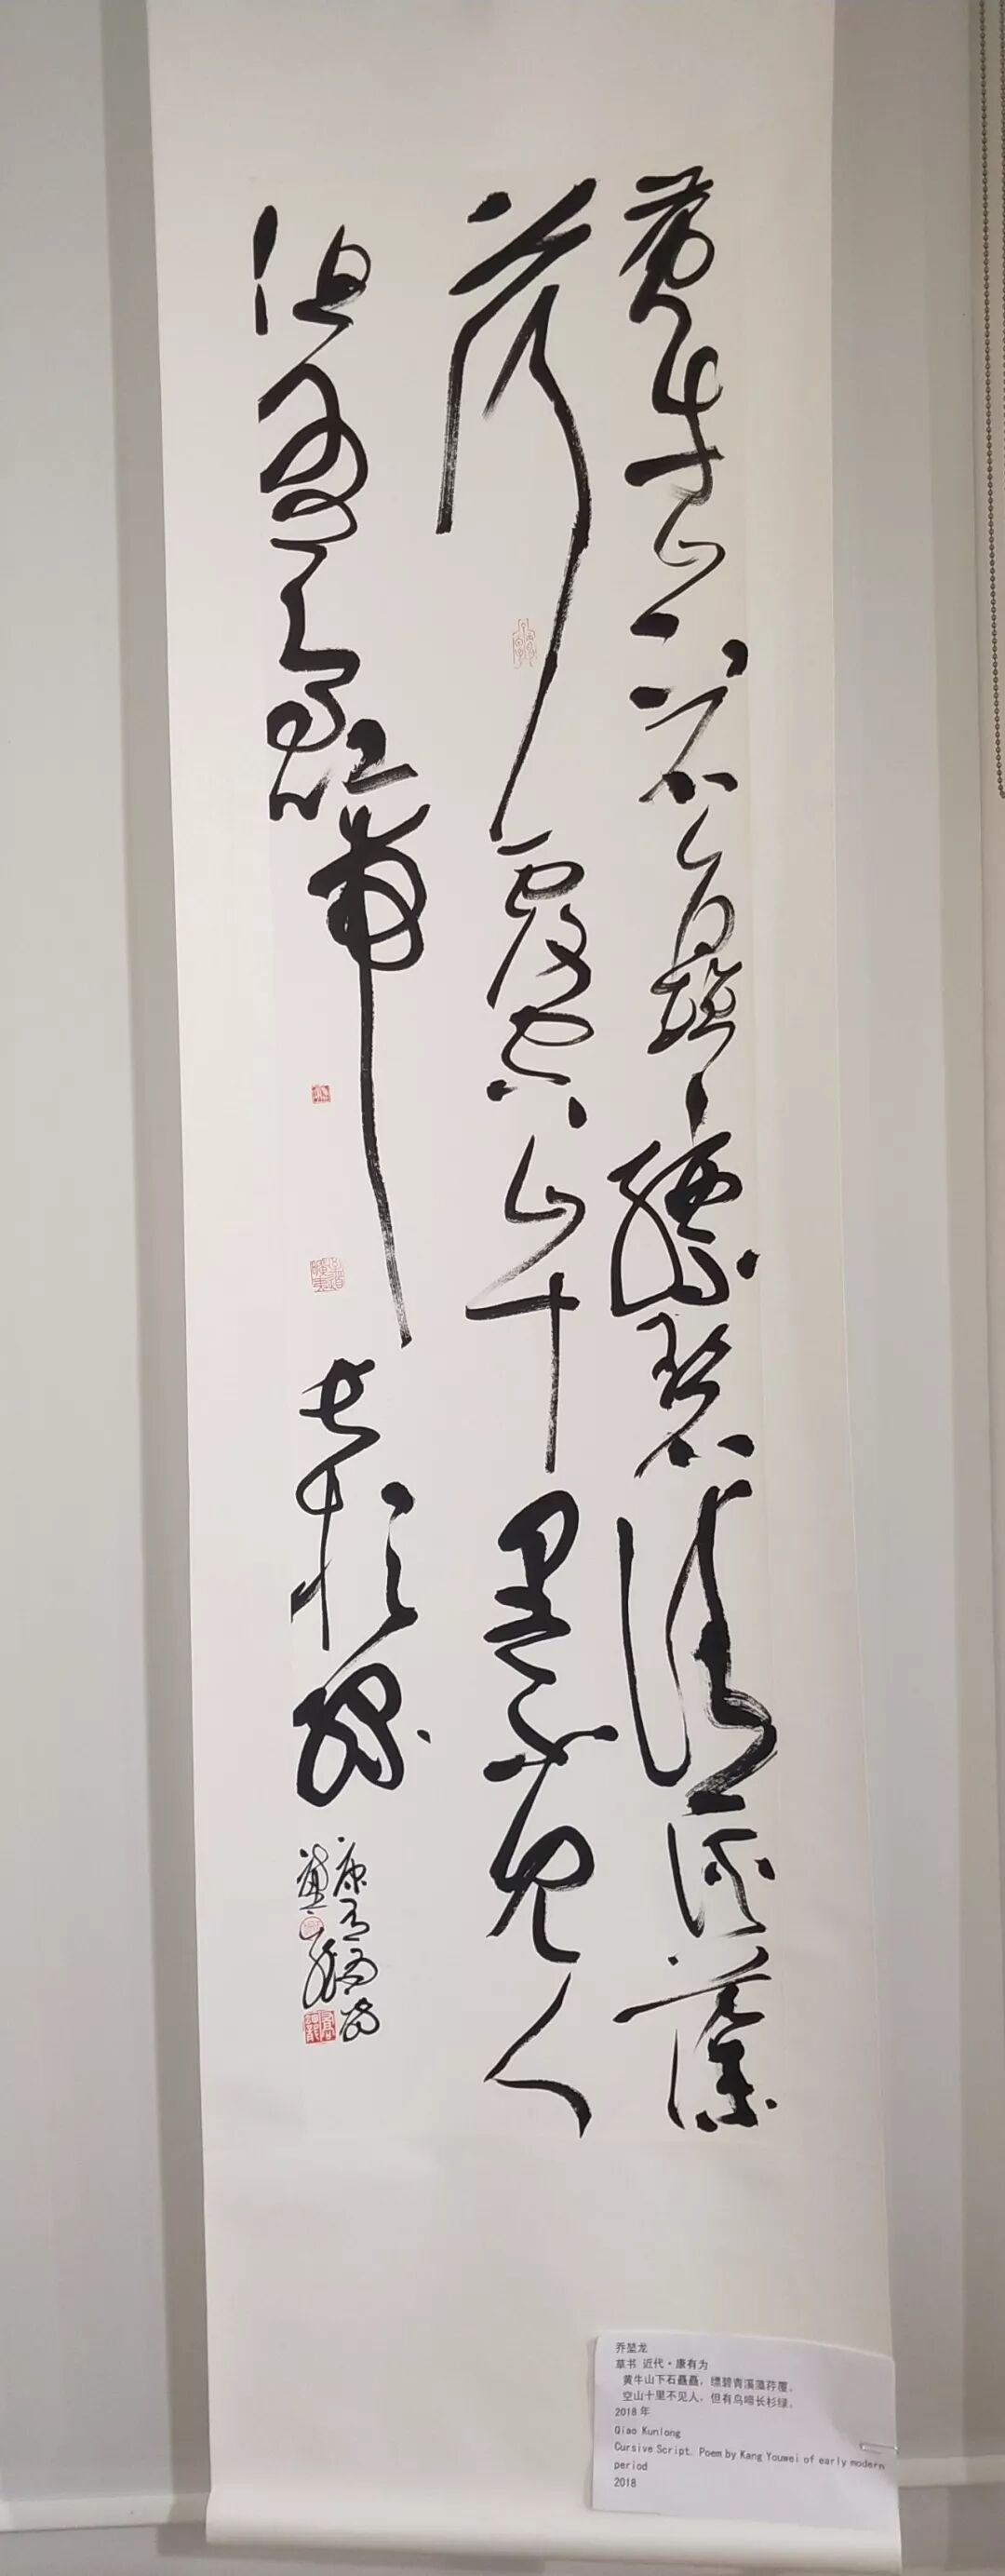 黄牛山下石矗矗縹碧清溪藻
荇覆空山十里不見人
但有鳥啼長杉綠
康有為詩
乔堃龙
草书 近代·康有为
黄牛山下石矗矗，缥碧青溪藻荇覆。
空山十里不见人，但有鸟啼长杉绿。
2018 年
Qiao Kunlong
Cursive Script. Poem by Kang Youwei of early modern
period
2018